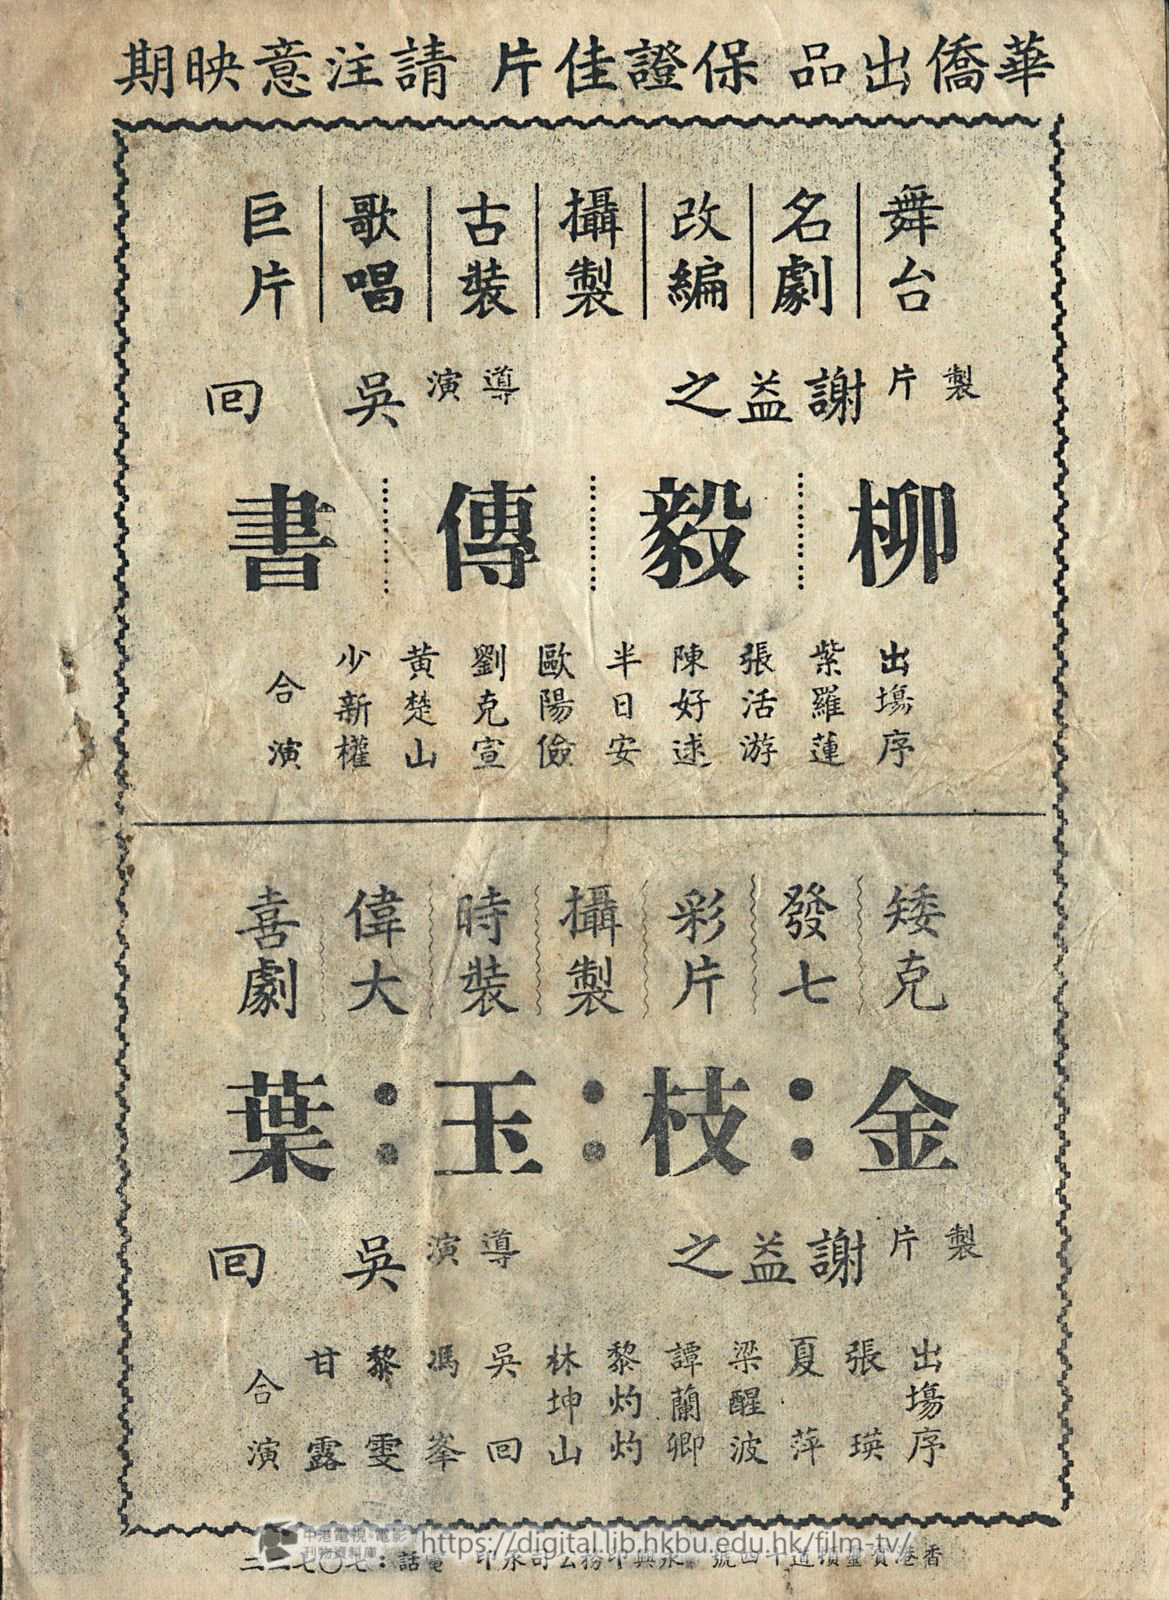 華僑出品 保證佳片 請注意映期
舞台 名劇 改編 攝製 古裝 歌唱 巨片
製片 謝益之 導演 吳回
柳毅傳書
出塲序
紫羅蓮
張活游
陳好逑
半日安
歐陽儉
劉克宣
黃楚山
少新權
合演
矮克 發七 彩片 攝製 時裝 偉大 喜劇
金:枝:玉:葉
製片 謝益之 導演 吳回
出塲序
張瑛
夏萍
梁醒波
譚蘭卿
黎灼灼
林坤山
吳回
馮峯
黎雯
甘露
合演
中港電視·電影
刊物資料庫
https://digital.lib.hkbu.edu.hk/film-tv/
電話：七〇七二二